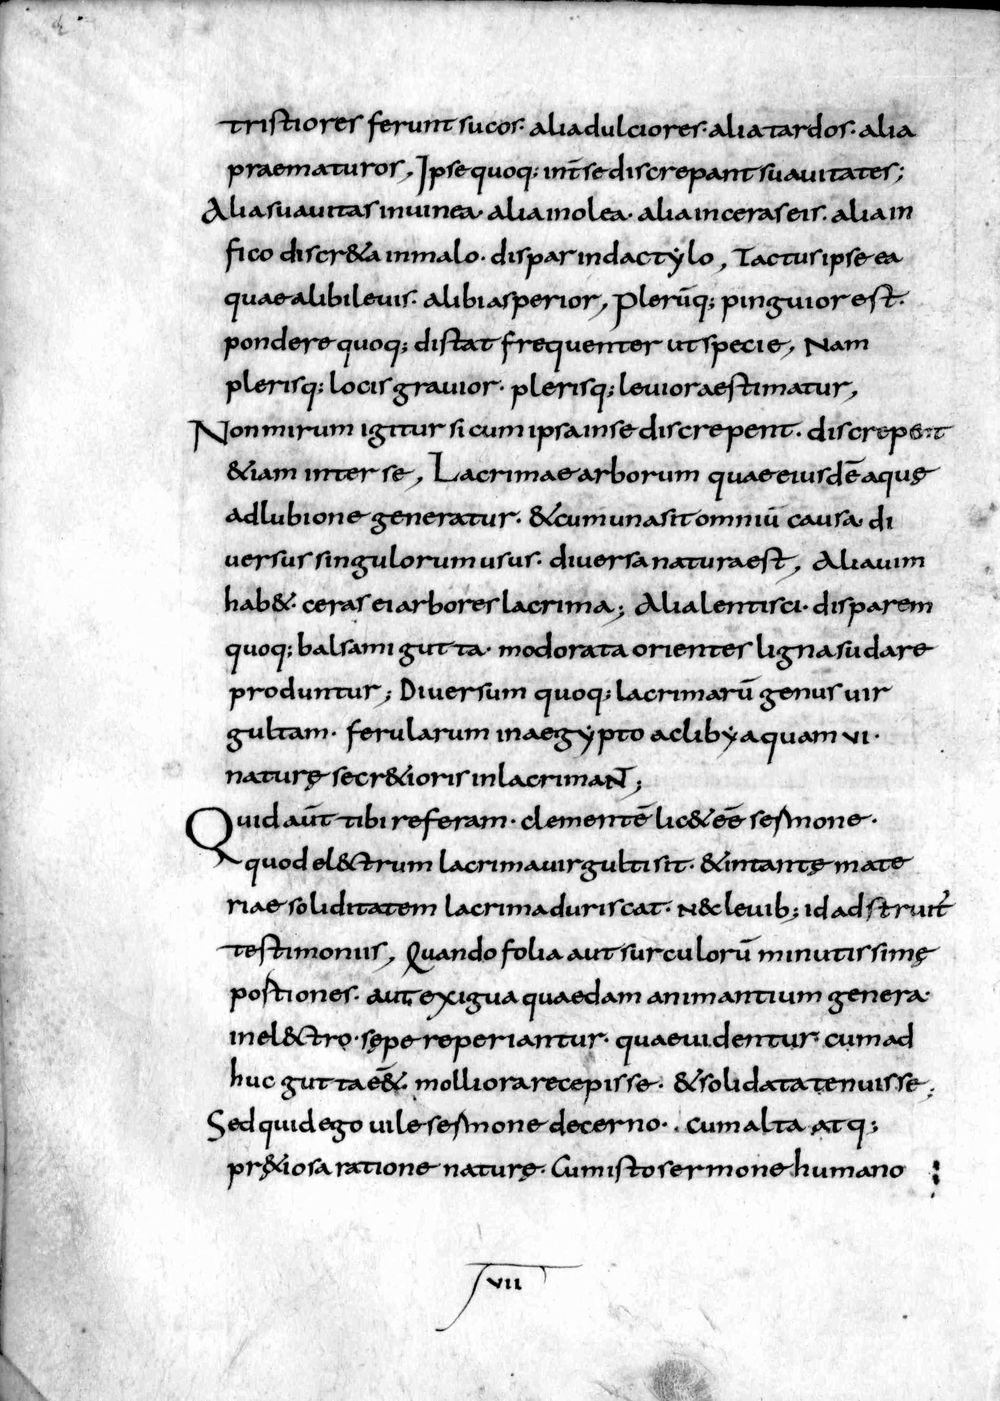 tristiores ferunt sucos· alia dulciores· alia tardos· alia
praematuros, Ipse quoq; int̄ se discrepant suauitates;
Alia suauitas in uinea· alia in olea· alia in ceraseis· alia in
fico discr&a in malo· dispar in dactẏlo, Tactus ipse ea
quae alibi leuis· alibi asperior, Plerūq; pinguior est·
pondere quoq; distat frequenter ut specie, Nam
plerisq; locis grauior· plerisq; leuior aestimatur,
Non mirum igitur si cum ipsa in se discrepent· discrepent
&iam inter se, Lacrimae arborum quae eiusdē aquę
adlubione generatur· & cum una sit omniū causa· di
uersus singulorum usus· diuersa natura est, Alia uim
hab&· cerasei arbores lacrima; Alia lentisci· disparem
quoq; balsami gutta· modorata orientes ligna sudare
produntur; Diuersum quoq; lacrimarū genus uir
gultam· ferularum in aegẏpto ac libẏa quam vi·
naturę secr&ioris in lacrimaNT;
Quid aūt tibi referam· clementē lic& eē sermone·
quod el&trum lacrima uirgulti sit· & in tantę mate
riae soliditatem lacrima duriscat· N&c leuib; id adstruit᷑
testimoniis, Quando folia aut surculorū minutissimę
postiones· aut exigua quaedam animantium genera·
in el&tro· sępe reperiantur· quae uidentur cum ad
huc gutta ē&· molliora recepisse· & solidata tenuisse;
Sed quid ego uile sermone decerno·. cum alta atq;
pr&iosa ratione naturę· Cum isto sermone humano
VII